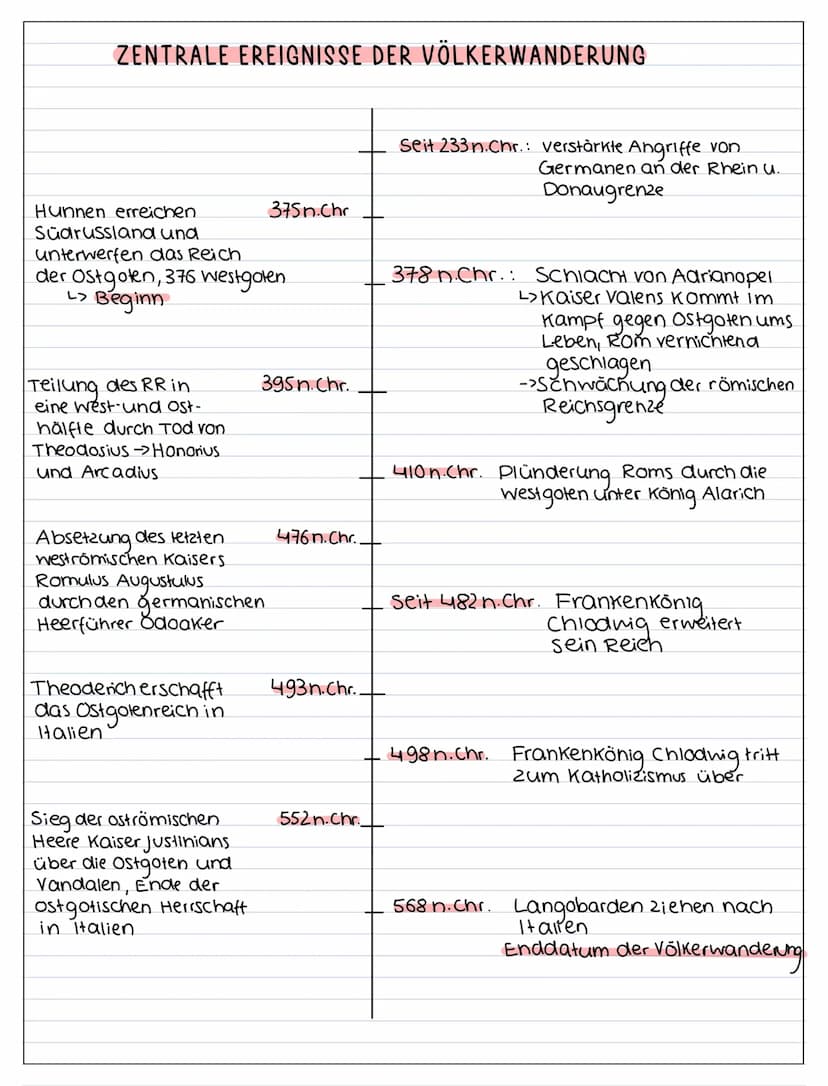 ZENTRALE EREIGNISSE DER VÖLKERWANDERUNG
Seit 233 n.Chr.: verstärkte Angriffe von
Germanen an der Rhein u.
Donaugrenze
Hunnen erreichen 375 n.Chr
Südrussland und
unterwerfen das Reich
der Ostgoten, 376 Westgoten
↳ Beginn
378 n.Chr.: Schlacht von Adrianopel
↳ Kaiser Valens kommt im
Kampf gegen Ostgoten ums
Leben, Rom vernichtend
geschlagen
→ Schwächung der römischen
Reichsgrenze
Teilung des RR in 395 n.Chr.
eine West- und Ost-
hälfte durch Tod von
Theodosius → Honorius
und Arcadius
410 n.Chr. Plünderung Roms durch die
Westgoten unter König Alarich
Absetzung des letzten 476 n.Chr.
weströmischen Kaisers
Romulus Augustulus
durch den germanischen
Heerführer Odoaker
Seit 482 n.Chr. Frankenkönig
Chlodwig erweitert
sein Reich
Theoderich erschafft 493 n.Chr.
das Ostgotenreich in
Italien
498 n.Chr. Frankenkönig Chlodwig tritt
zum Katholizismus über
Sieg der oströmischen 552 n.Chr.
Heere Kaiser Justinians
über die Ostgoten und
Vandalen, Ende der
ostgotischen Herrschaft
in Italien
568 n.Chr. Langobarden ziehen nach
Italien
Enddatum der Völkerwanderung